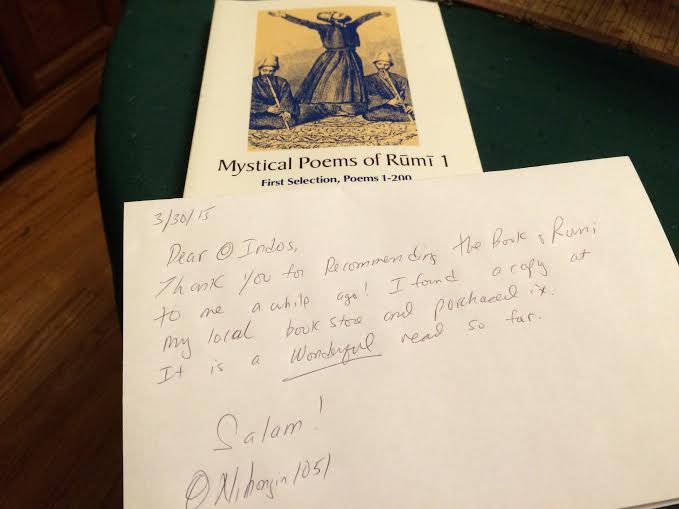 Mystical Poems of Rūmī 1
First Selection, Poems 1-200
3/30/15
Dear @ Indos,
Thank you for Recommending the Book of Rumi
to me a while ago! I found a copy at
my local book store and purchased it.
It is a Wonderful read so far.
Salam!
@Nihongin1051